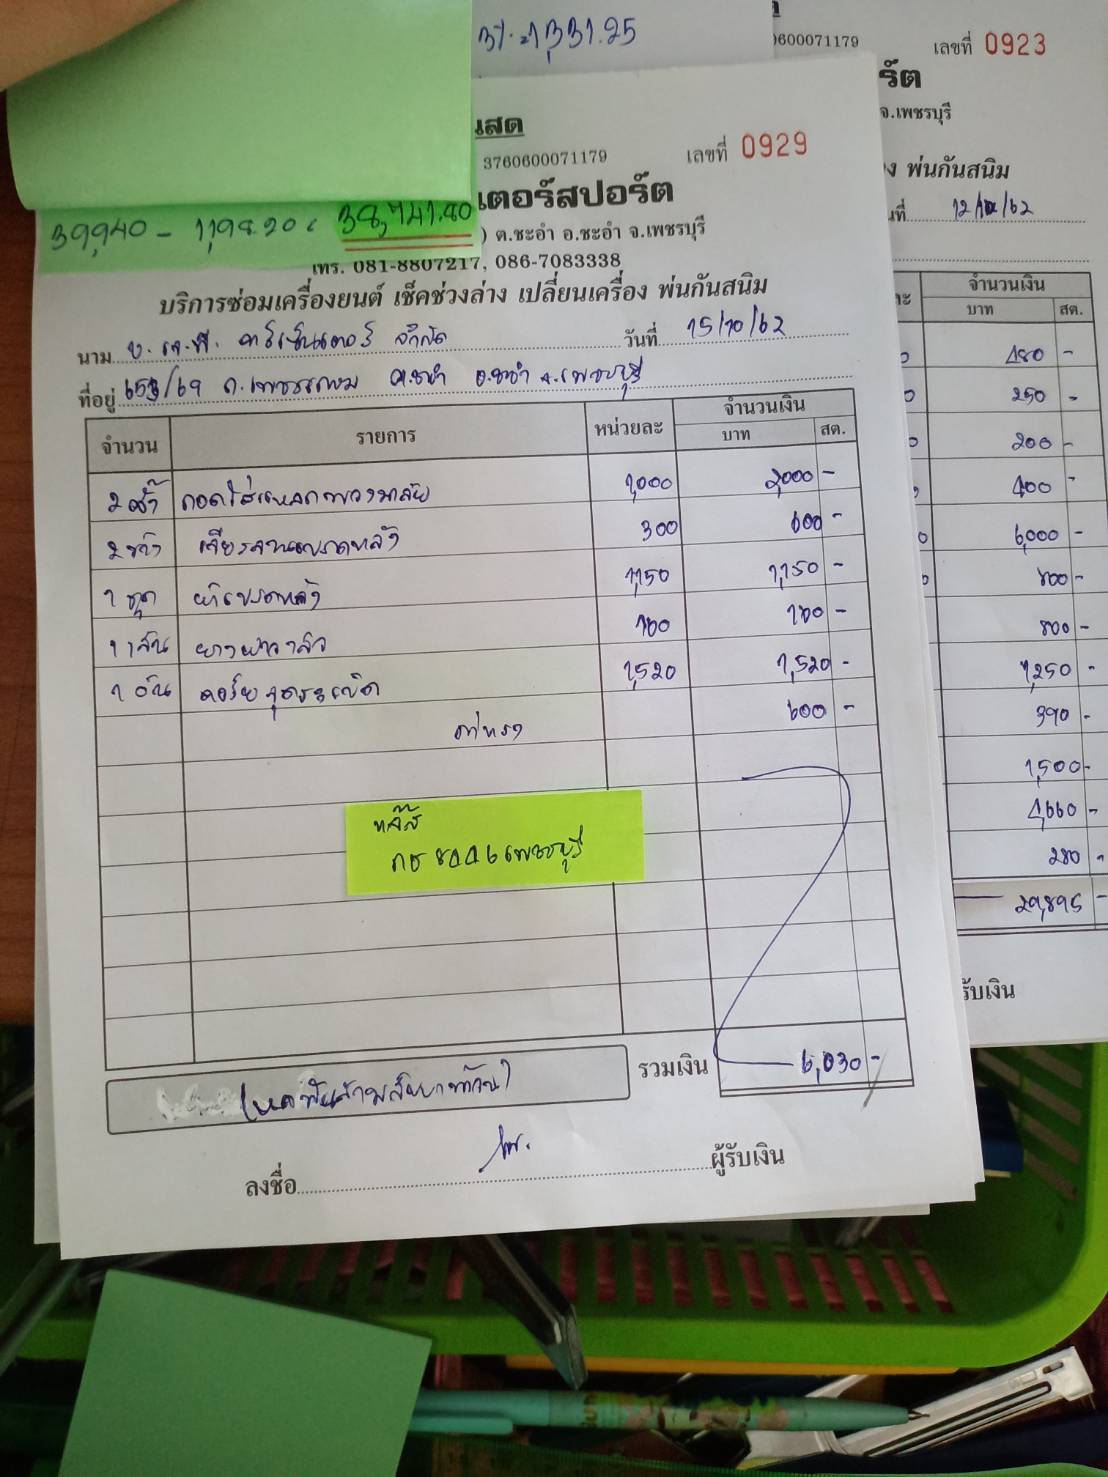 3% = 1,331.25
39,940 - 1,198.20 = 38,741.80
เสด
3760600071179 เลขที่ 0929
เตอร์สปอร์ต
) ต.ชะอำ อ.ชะอำ จ.เพชรบุรี
โทร. 081-8807217, 086-7083338
บริการซ่อมเครื่องยนต์ เช็คช่วงล่าง เปลี่ยนเครื่อง พ่นกันสนิม
นาม บ. เจ.พี. คาร์เซ็นเตอร์ จำกัด วันที่ 15/10/62
ที่อยู่ 653/69 ถ.เพชรเกษม ต.ชะอำ อ.ชะอำ จ.เพชรบุรี
จำนวน รายการ หน่วยละ จำนวนเงิน
บาท สต.
2 ตัว ถอดใส่ 1,000 2,000 -
2 ข้าง เจียรจานเบรคหลัง 300 600 -
1 ชุด ผ้าเบรคหลัง 1,150 1,150 -
1 เส้น 160 160 -
1 อัน คอร์ยจุดระเบิด 1,520 1,520 -
ค่าแรง 600 -
เพชรบุรี
รวมเงิน 6,030 -
(หกพันสามสิบบาทถ้วน)
ลงชื่อ ผู้รับเงิน
0600071179 เลขที่ 0923
ร์ต
จ.เพชรบุรี
ง พ่นกันสนิม
ที่ 12/10/62
ละ จำนวนเงิน
บาท สต.
480 -
250 -
200 -
400 -
6,000 -
800 -
800 -
1,250 -
390 -
1,500 -
4,660 -
280 -
29,895 -
รับเงิน